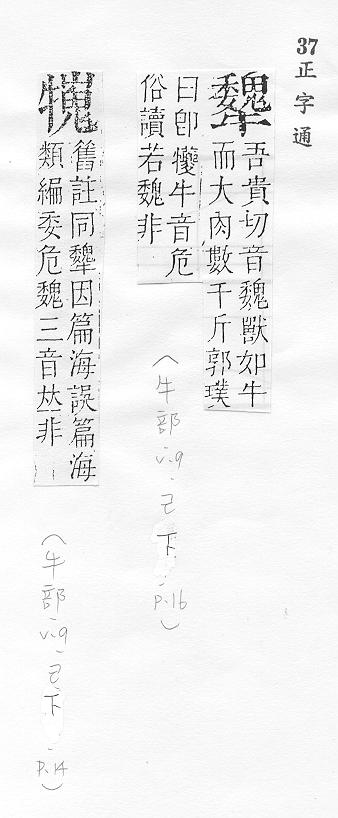 37 正字通
犩
吾貴切音魏獸如牛
而大肉數千斤郭璞
曰卽犪牛音危
俗讀若魏非
(牛部 v.9 己下 p.16)
舊註同犩因篇海誤篇海
類編委危魏三音𠀤非
(牛部 v.9 己下 p.14)